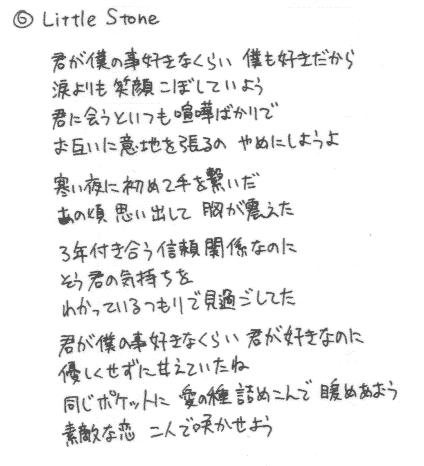 ⑥ Little Stone
君が僕の事好きなくらい 僕も好きだから
涙よりも 笑顔こぼしていよう
君に会うといつも喧嘩ばかりで
お互いに意地を張るの やめにしようよ
寒い夜に初めて手を繋いだ
あの頃 思い出して 胸が震えた
3年付き合う信頼関係なのに
そう君の気持ちを
わかっているつもりで見過ごしてた
君が僕の事好きなくらい 君が好きなのに
優しくせずに甘えていたね
同じポケットに 愛の種 詰めこんで 暖めあおう
素敵な恋 二人で咲かせよう